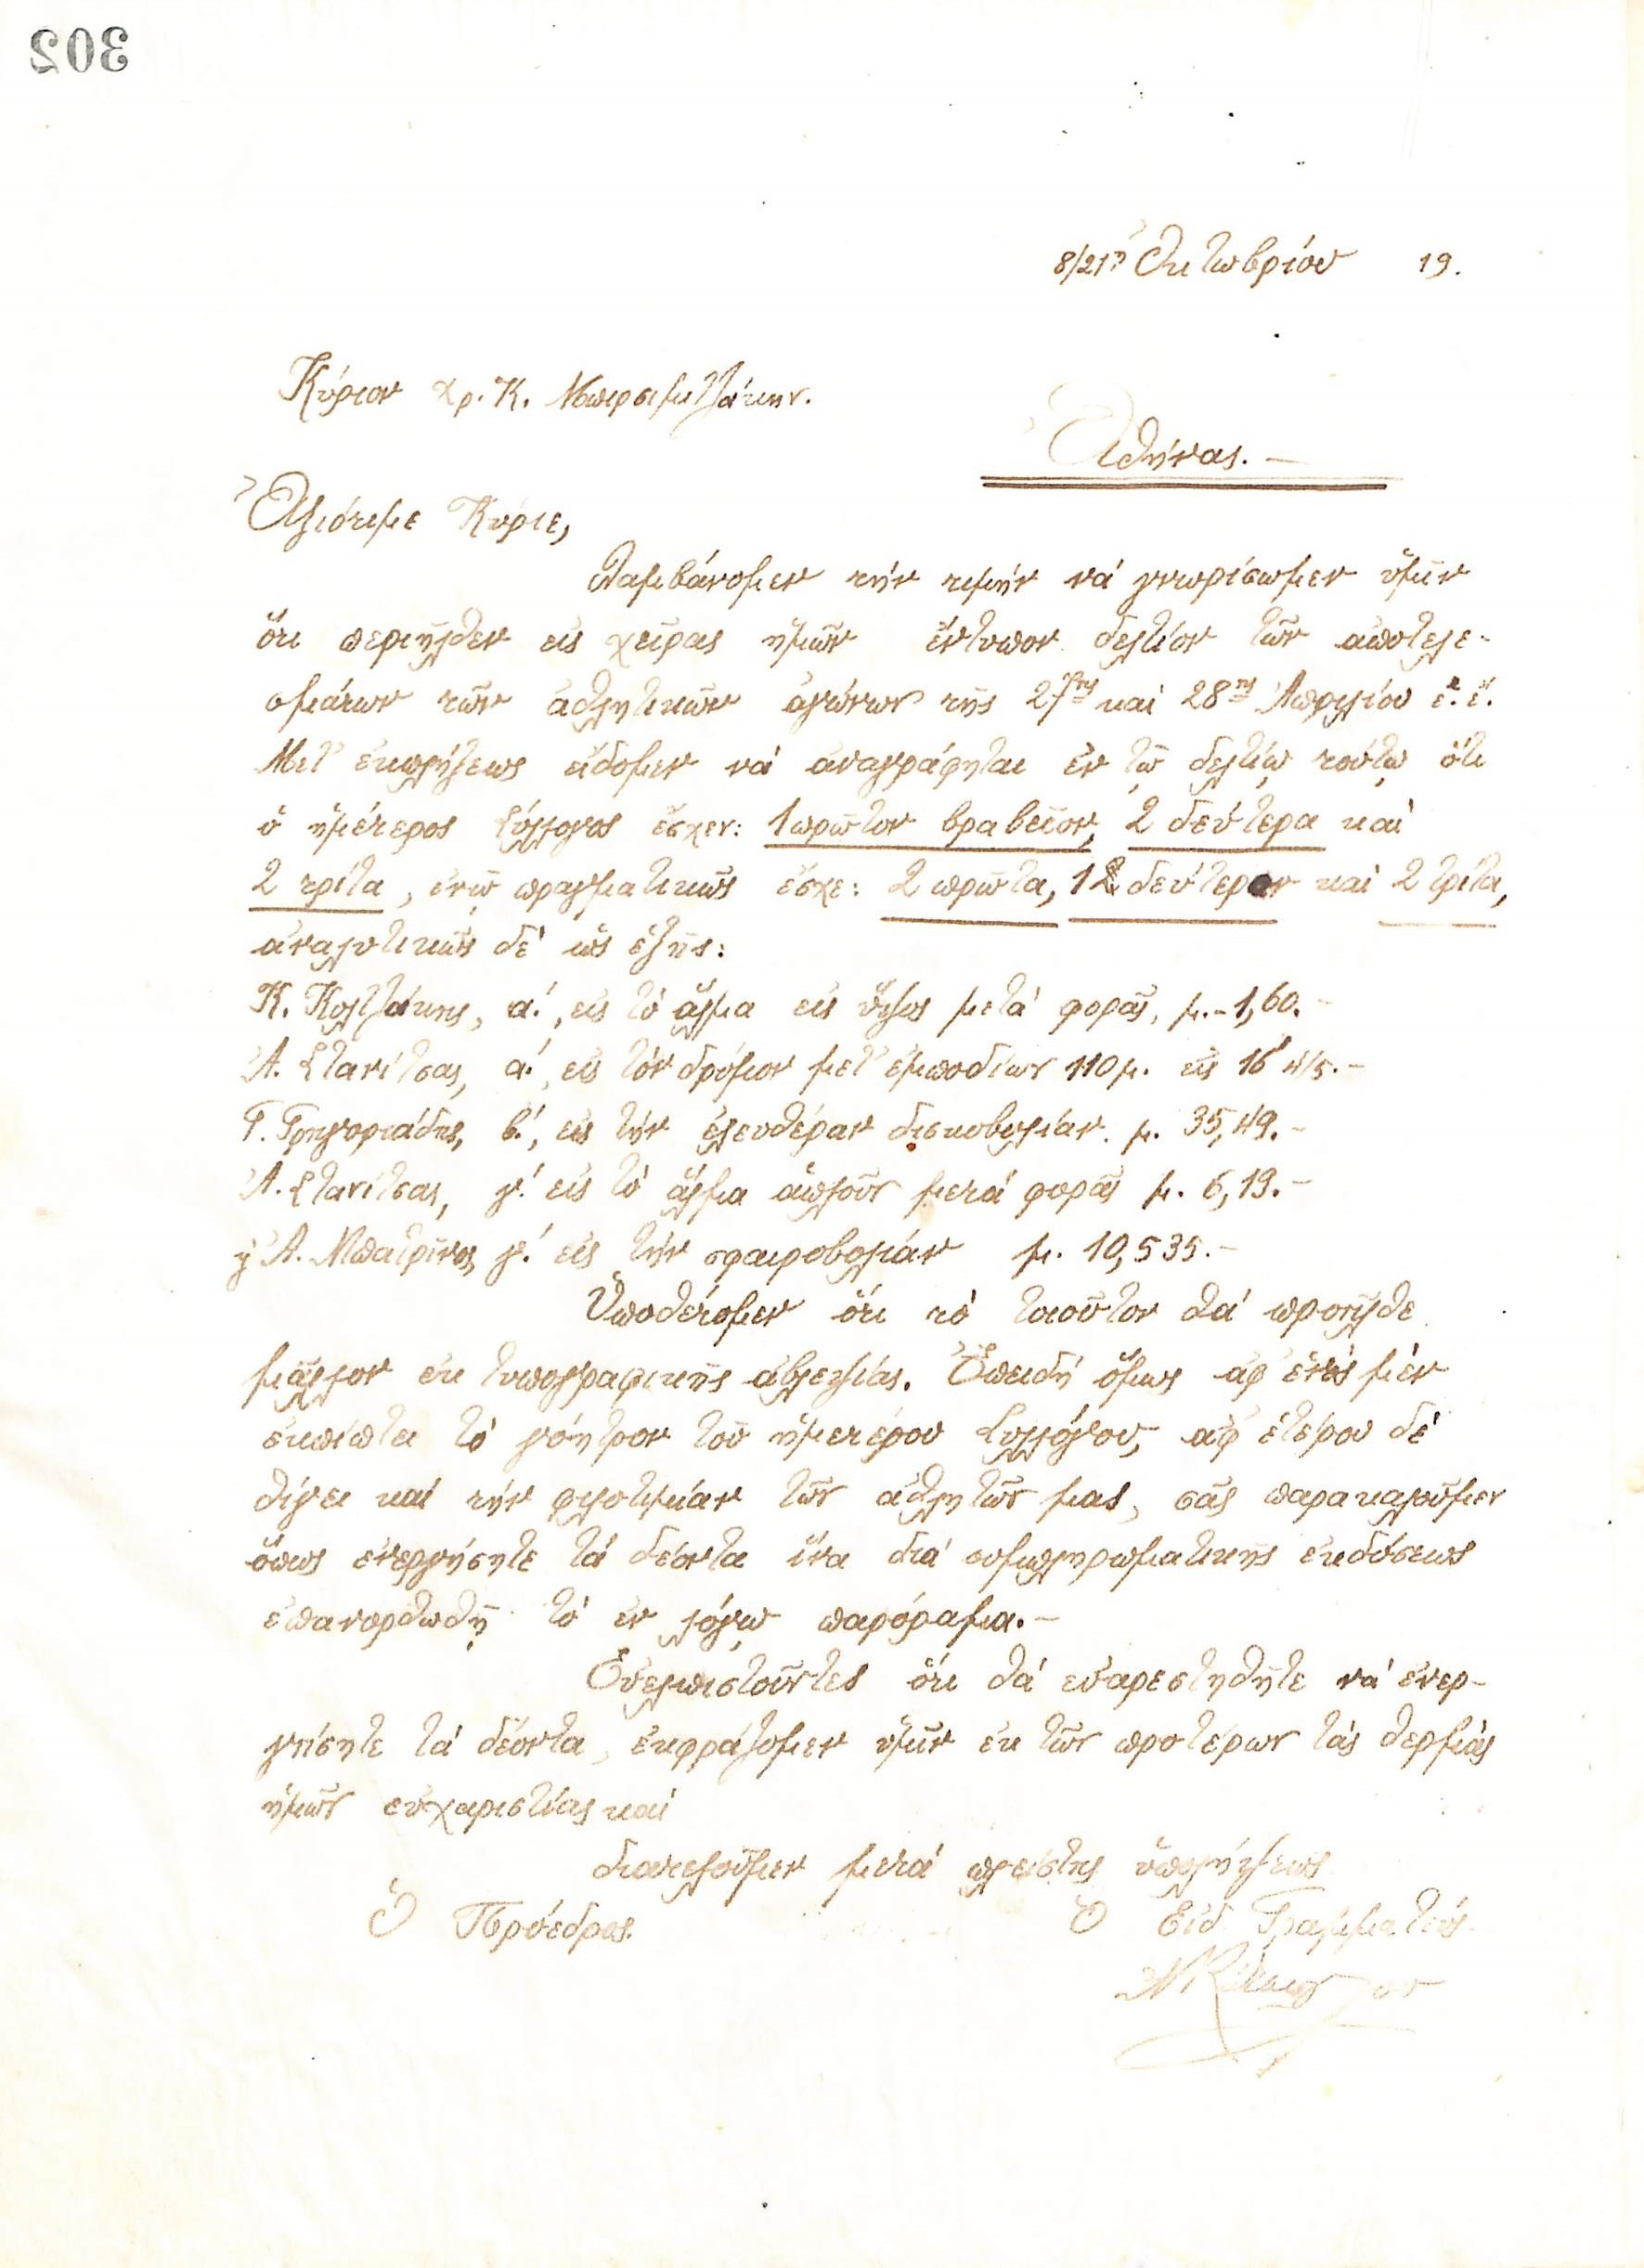 302
8/21ῃ Ὀκτωβρίου 19.
Κύριον Χρ. Κ. Μπιρσιμιτζάκην.
Ἀθήνας.—
Ἀξιότιμε Κύριε,
Λαμβάνομεν τήν τιμήν νά γνωρίσωμεν ὑμῖν
ὅτι περιῆλθεν εἰς χεῖρας ἡμῶν ἔντυπον δελτίον τῶν ἀποτελε-
σμάτων τῶν ἀθλητικῶν ἀγώνων τῆς 27ης καί 28ης Ἀπριλίου ἐ. ἔ.
Μετ' ἐκπλήξεως εἴδομεν νά ἀναγράφηται ἐν τῷ δελτίῳ τούτῳ ὅτι
ὁ ἡμέτερος Σύλλογος ἔσχεν: 1 πρῶτον βραβεῖον, 2 δεύτερα καί
2 τρίτα, ἐνῷ πραγματικῶς ἔσχε: 2 πρῶτα, 1 δεύτερον καί 2 τρίτα,
ἀναλυτικῶς δέ ὡς ἑξῆς:
Κ. Κολτζάκης, α!, εἰς τό ἅλμα εἰς ὕψος μετά φορᾶς, μ.-1,60.-
Ἀ. Στανίτσας, α!, εἰς τόν δρόμον μετ' ἐμποδίων 110 μ. εἰς 16" 4/5.-
Γ. Γρηγοριάδης, β!, εἰς τήν ἐλευθέραν δισκοβολίαν. μ. 35,49.-
Ἀ. Στανίτσας, γ! εἰς τό ἅλμα ἁπλοῦν μετά φορᾶς μ. 6,19.-
ἤ Ἀ. Μπατρῖνος, γ! εἰς τήν σφαιροβολίαν μ. 10,535.-
Ὑποθέτομεν ὅτι τό τοιοῦτον θά προῆλθε
μᾶλλον ἐκ τυπογραφικῆς ἀβλεψίας. Ἐπειδή ὅμως ἀφ' ἑνός μέν
ἐκπίπτει τό γόητρον τοῦ ἡμετέρου Συλλόγου, ἀφ' ἑτέρου δέ
θίγει καί τήν φιλοτιμίαν τῶν ἀθλητῶν μας, σᾶς παρακαλοῦμεν
ὅπως ἐνεργήσητε τά δέοντα ἵνα διά συμπληρωματικῆς ἐκδόσεως
ἐπανορθωθῇ τό ἐν λόγῳ παρόραμα.—
Εὐελπιστοῦντες ὅτι θά εὐαρεστηθῆτε νά ἐνερ-
γήσητε τά δέοντα, ἐκφράζομεν ὑμῖν ἐκ τῶν προτέρων τάς θερμάς
ἡμῶν εὐχαριστίας καί
διατελοῦμεν μετά πλείστης ὑπολήψεως
Ὁ Πρόεδρος. Ὁ Εἰδ Γραμματεύς.